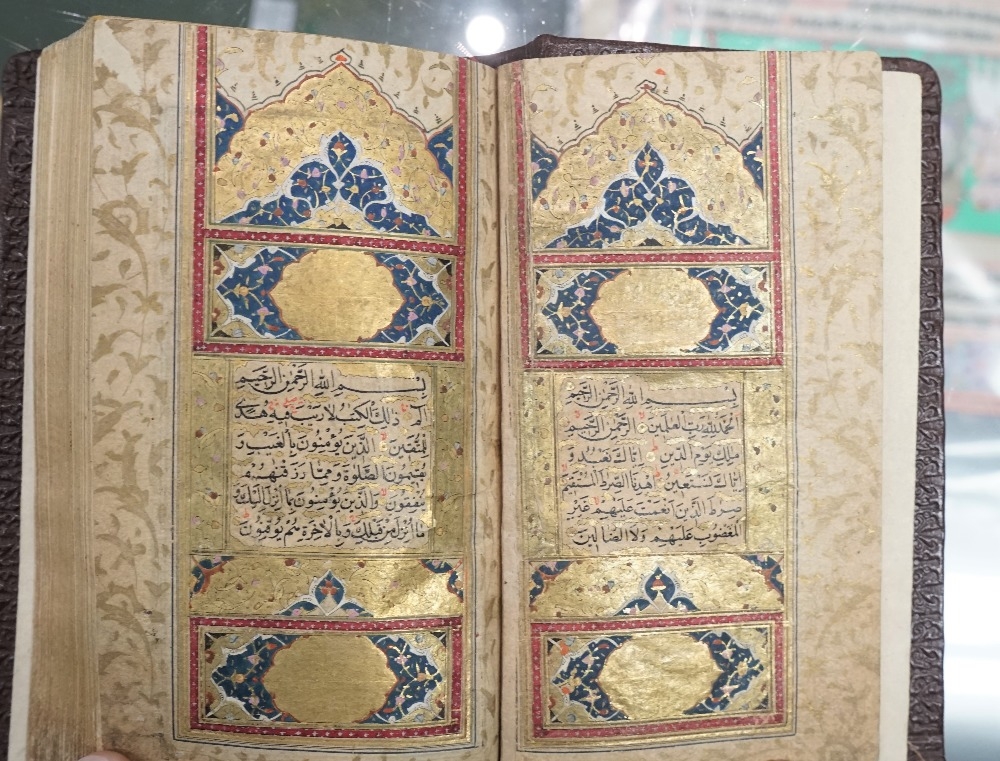 بِسْمِ اللهِ الرَّحْمٰنِ الرَّحِيمِ
اَلْحَمْدُ لِلّٰهِ رَبِّ الْعٰلَمِينَ الرَّحْمٰنِ الرَّحِيمِ
مٰلِكِ يَوْمِ الدِّينِ اِيَّاكَ نَعْبُدُ وَ
اِيَّاكَ نَسْتَعِينُ اِهْدِنَا الصِّرٰطَ الْمُسْتَقِيمَ
صِرٰطَ الَّذِينَ اَنْعَمْتَ عَلَيْهِمْ غَيْرِ
الْمَغْضُوبِ عَلَيْهِمْ وَلَا الضَّالِّينَ
بِسْمِ اللهِ الرَّحْمٰنِ الرَّحِيمِ
الم ذٰلِكَ الْكِتٰبُ لَا رَيْبَ فِيهِ هُدًى
لِلْمُتَّقِينَ الَّذِينَ يُؤْمِنُونَ بِالْغَيْبِ وَ
يُقِيمُونَ الصَّلٰوةَ وَمِمَّا رَزَقْنٰهُمْ
يُنْفِقُونَ وَالَّذِينَ يُؤْمِنُونَ بِمَا اُنْزِلَ اِلَيْكَ وَ
مَا اُنْزِلَ مِنْ قَبْلِكَ وَبِالْاٰخِرَةِ هُمْ يُوقِنُونَ